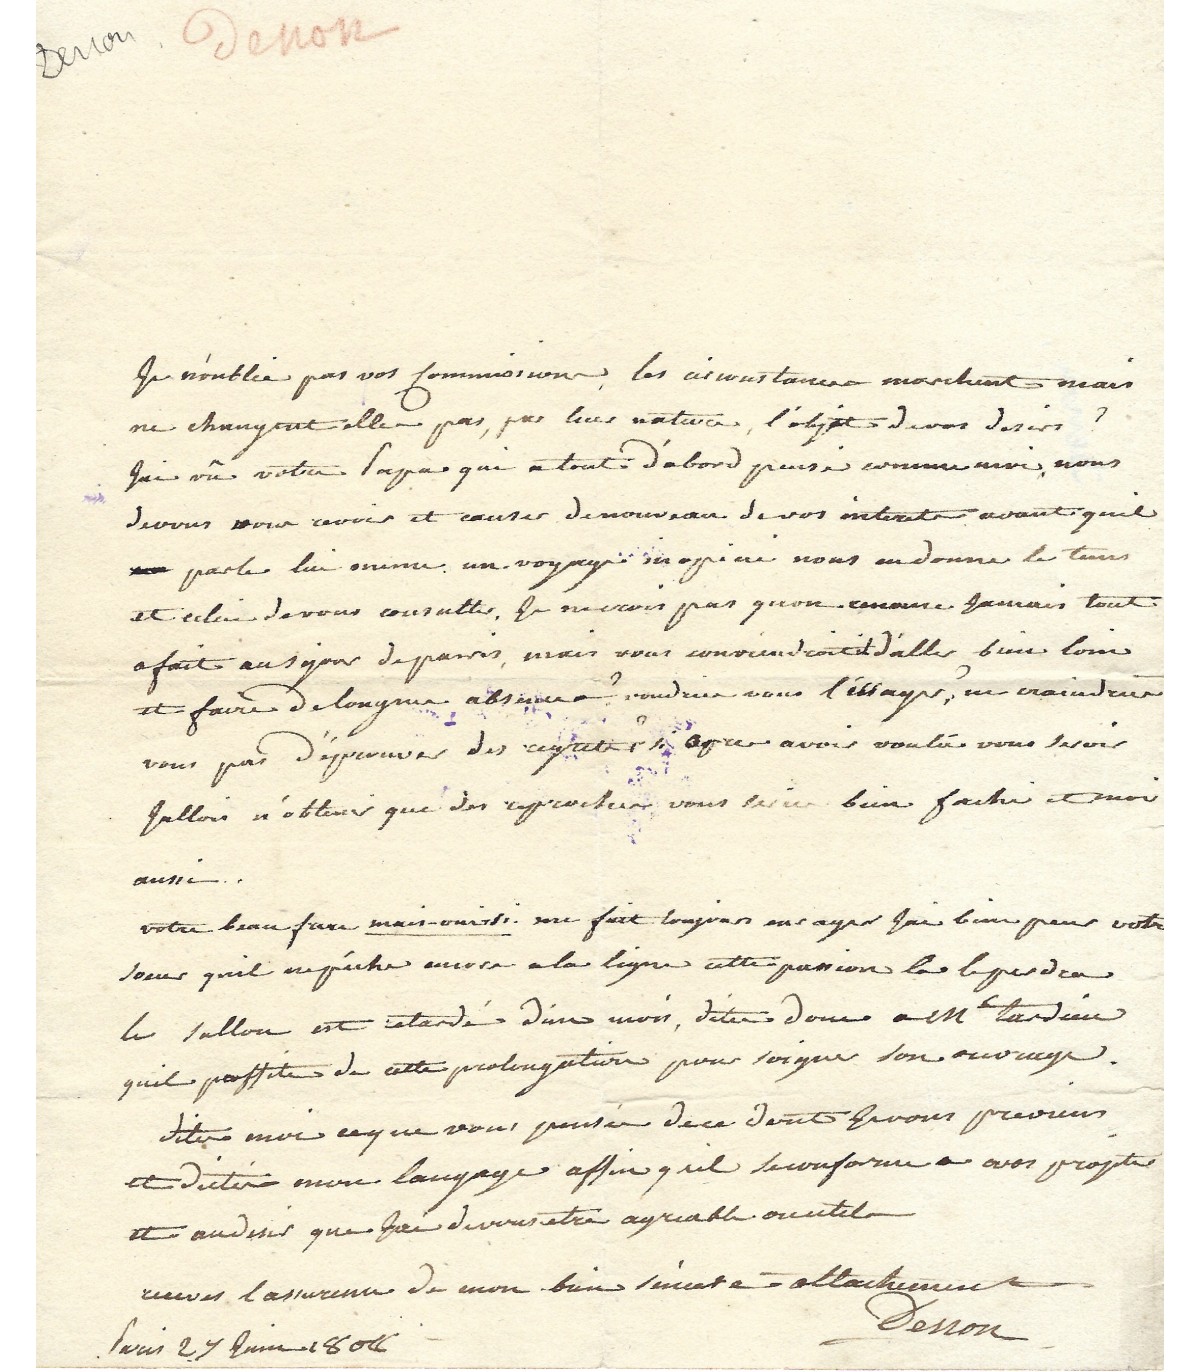 Denon. Denon
Je n'oublie pas vos Commissions, les circonstances marchent mais
ne changent elles pas, par leur nature, l'objet de vos desirs ?
J'ai vû votre Papa qui a tout d'abord pensé comme moi, nous
devons nous revoir et causer de nouveau de vos interets avant quil
parle lui meme. un voyage inopiné nous en donne le tems
et celui de vous consulter. Je ne crois pas quon renonce Jamais tout
a fait au sejour de paris, mais vous conviendroit il d'aller bien loin
et faire de longues absences ? voudriez vous l'essayer ? ne craindriez
vous pas d'éprouver des regrets ? si apres avoir voulu vous servir
J'allois n'obtenir que des reproches vous seriez bien faché et moi
aussi..
votre beau frere me fait toujours enrager J'ai bien peur votre
soeur quil ne pêche encore a la ligne cette passion la le perdra
le sallon est retardé d'un mois, dites donc a Mr tardieu
quil proffite de cette prolongation pour soigner son ouvrage.
dites moi ce que vous pensés de ce dont Je vous previens
et dictés mon langage affin qu'il se conforme a vos projets
et au desir que J'ai de vous etre agreable ou utile
receves l'assurence de mon bien sincere attachement
Denon
Paris 27 Juin